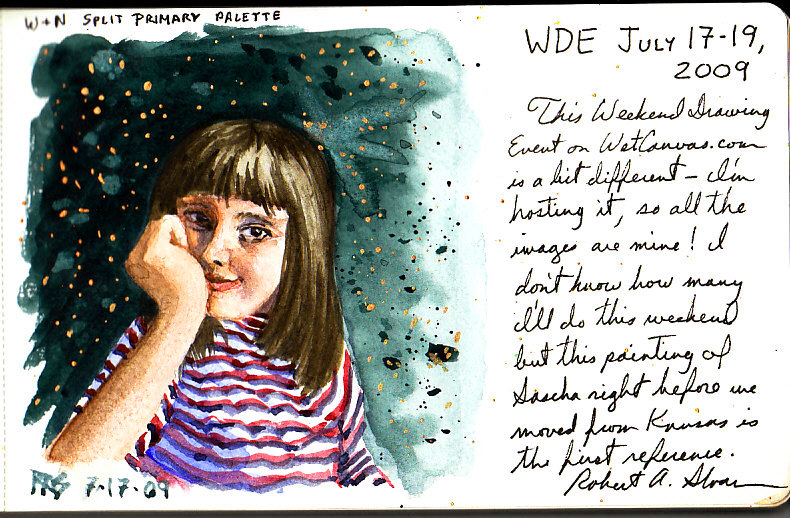 W+N SPLIT PRIMARY PALETTE
WDE JULY 17-19,
2009
This Weekend Drawing
Event on WetCanvas.com
is a bit different - I'm
hosting it, so all the
images are mine! I
don't know how many
I'll do this weekend
but this painting of
Sascha right before we
moved from Kansas is
the first reference.
Robert A. Sloan
RAS 7-17-09